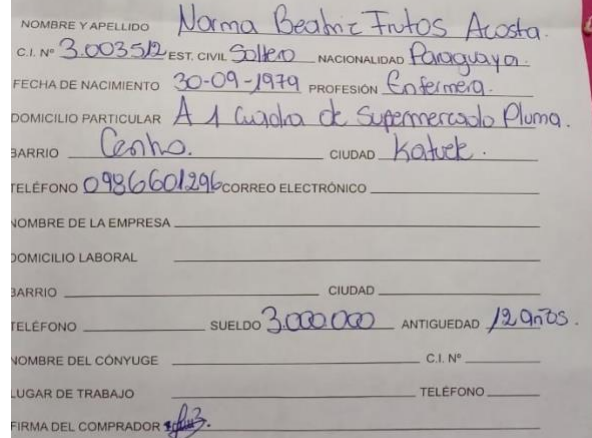 NOMBRE Y APELLIDO Norma Beatriz Frutos Acosta.
C.I. Nº 3.003.512 EST. CIVIL Soltero NACIONALIDAD Paraguaya.
FECHA DE NACIMIENTO 30-09-1979 PROFESIÓN Enfermera.
DOMICILIO PARTICULAR A 1 Cuadra de Supermercado Pluma.
BARRIO Centro. CIUDAD
TELÉFONO 0986601296 CORREO ELECTRÓNICO
NOMBRE DE LA EMPRESA
DOMICILIO LABORAL
BARRIO CIUDAD
TELÉFONO SUELDO 3.000.000 ANTIGUEDAD 12 años.
NOMBRE DEL CÓNYUGE C.I. Nº
LUGAR DE TRABAJO TELÉFONO
FIRMA DEL COMPRADOR